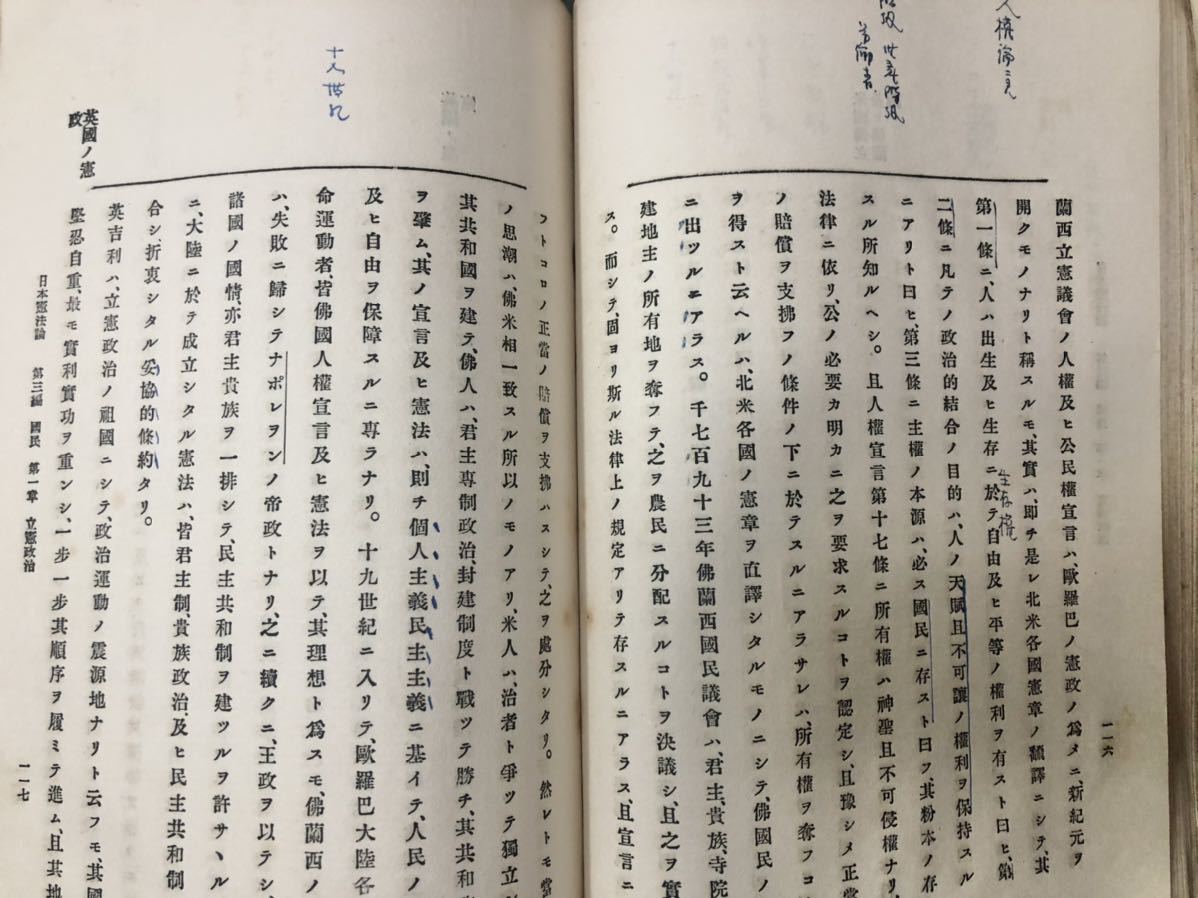 人権論ニ見
階級 世襲階級
労働者
一一六
蘭西立憲議會ノ人權及ヒ公民權宣言ハ、歐羅巴ノ憲政ノ爲メニ、新紀元ヲ
開クモノナリト稱スルモ、其實ハ、即チ是レ北米各國憲章ノ飜譯ニシテ、其
第一條ニ、人ハ出生及ヒ生存ニ於テ自由及ヒ平等ノ權利ヲ有スト曰ヒ、第
生存権
二條ニ凡テノ政治的結合ノ目的ハ、人ノ天賦且不可讓ノ權利ヲ保持スル
ニアリト曰ヒ、第三條ニ主權ノ本源ハ、必ス國民ニ存スト曰フ、其粉本ノ存
スル所知ルヘシ。且人權宣言第十七條ニ所有權ハ神聖且不可侵權ナリ、
法律ニ依リ、公ノ必要カ明カニ之ヲ要求スルコトヲ認定シ、且豫シメ正當
ノ賠償ヲ支拂フノ條件ノ下ニ於テスルニアラサレハ、所有權ヲ奪フコ
ヲ得スト云ヘルハ、北米各國ノ憲章ヲ直譯シタルモノニシテ、佛國民ノ
ニ出ツルニアラス。千七百九十三年佛蘭西國民議會ハ、君主、貴族、寺院
建地主ノ所有地ヲ奪フテ、之ヲ農民ニ分配スルコトヲ決議シ、且之ヲ實
ス。而シテ、固ヨリ斯ル法律上ノ規定アリテ存スルニアラス、且宣言ニ
十八世紀
フトコロノ正當ノ賠償ヲ支拂ハスシテ、之ヲ處分シタリ。然レトモ當
ノ思潮ハ、佛米相一致スル所以ノモノアリ、米人ハ、治者ト爭ツテ獨立
其共和國ヲ建テ、佛人ハ、君主專制政治、封建制度ト戰ツテ勝チ、其共和
ヲ肇ム、其ノ宣言及ヒ憲法ハ、則チ個人主義民主主義ニ基イテ、人民ノ
及ヒ自由ヲ保障スルニ專ラナリ。十九世紀ニ入リテ、歐羅巴大陸各
命運動者、皆佛國人權宣言及ヒ憲法ヲ以テ、其理想ト爲スモ、佛蘭西ノ
ハ、失敗ニ歸シテナポレヲンノ帝政トナリ、之ニ續クニ、王政ヲ以テシ、
諸國ノ國情、亦君主貴族ヲ一排シテ、民主共和制ヲ建ツルヲ許サヽル
ニ、大陸ニ於テ成立シタル憲法ハ、皆君主制、貴族政治、及ヒ民主共和制
合シ、折衷シタル妥協的條約タリ。
英國ノ憲
政
英吉利ハ、立憲政治ノ祖國ニシテ、政治運動ノ震源地ナリト云フモ、其國
堅忍自重、最モ實利實功ヲ重ンシ、一步一步其順序ヲ履ミテ進ム、且其地
日本憲法論 第三編 國民 第一章 立憲政治
一一七